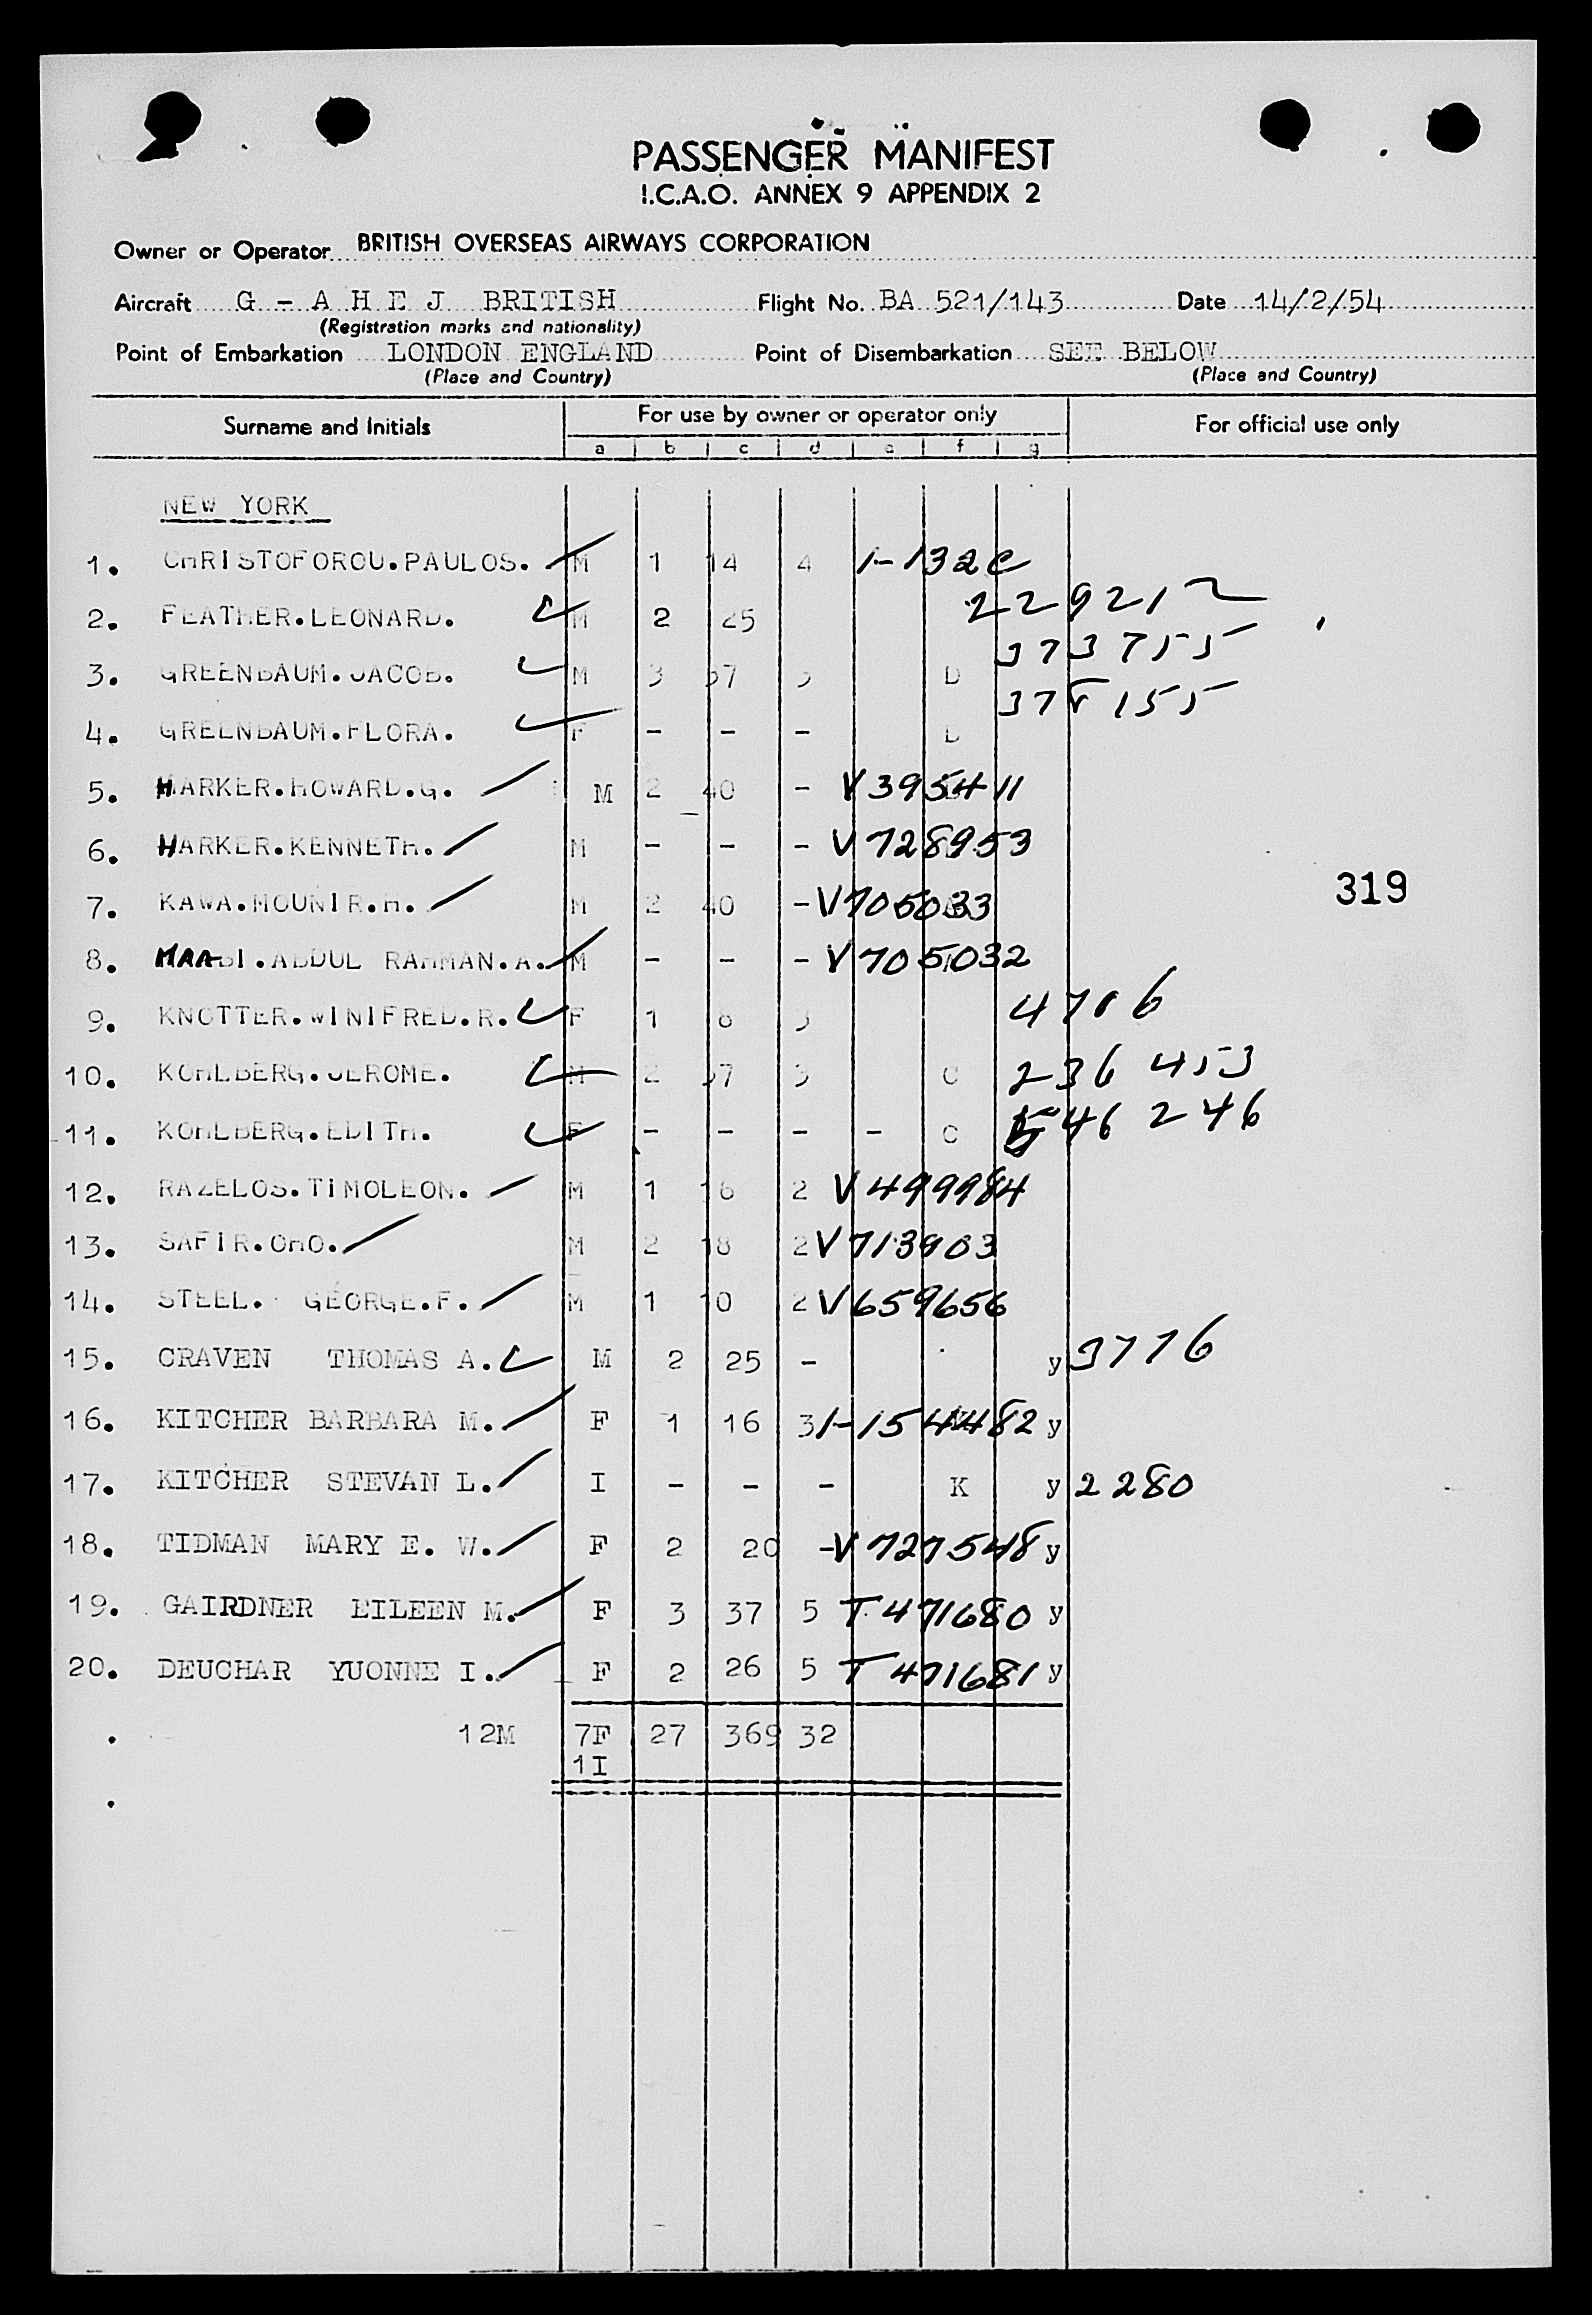 PASSENGER MANIFEST
I.C.A.O. ANNEX 9 APPENDIX 2
Owner or Operator BRITISH OVERSEAS AIRWAYS CORPORATION
Aircraft G - A H E J BRITISH Flight No. BA 521/143 Date 14/2/54
(Registration marks and nationality)
Point of Embarkation LONDON ENGLAND Point of Disembarkation SEE BELOW
(Place and Country) (Place and Country)
Surname and Initials For use by owner or operator only For official use only
a b c d e f g
NEW YORK
1. CHRISTOFOROU.PAULOS. M 1 14 4 1-132C
2. FEATHER.LEONARD. M 2 25 229212
3. GREENBAUM.JACOB. M 3 37 5 D 373755
4. GREENBAUM.FLORA. F - - - D 155
5. HARKER.HOWARD.G. M 2 40 - V395411
6. HARKER.KENNETH. M - - - V728953
7. KAWA.MOUNIR.H. M 2 40 - V705033
319
8. MAABI.ABDUL RAHMAN.A. M - - - V705032
9. KNOTTER.WINIFRED.R. F 1 8 3 4706
10. KOHLBERG.JEROME. M 2 37 3 C 236 453
11. KOHLBERG.EDITH. F - - - - C 546 246
12. RAZELOS.TIMOLEON. M 1 16 2 V499984
13. SAFIR.OHO. M 2 18 2 V713903
14. STEEL. GEORGE.F. M 1 10 2 V659656
15. CRAVEN THOMAS A. M 2 25 - y 3776
16. KITCHER BARBARA M. F 1 16 3 1-154482 y
17. KITCHER STEVAN L. I - - - K y 2280
18. TIDMAN MARY E. W. F 2 20 - V727548 y
19. GAIRDNER EILEEN M. F 3 37 5 T.471680 y
20. DEUCHAR YUONNE I. F 2 26 5 T471681 y
12M 7F 27 369 32
1I